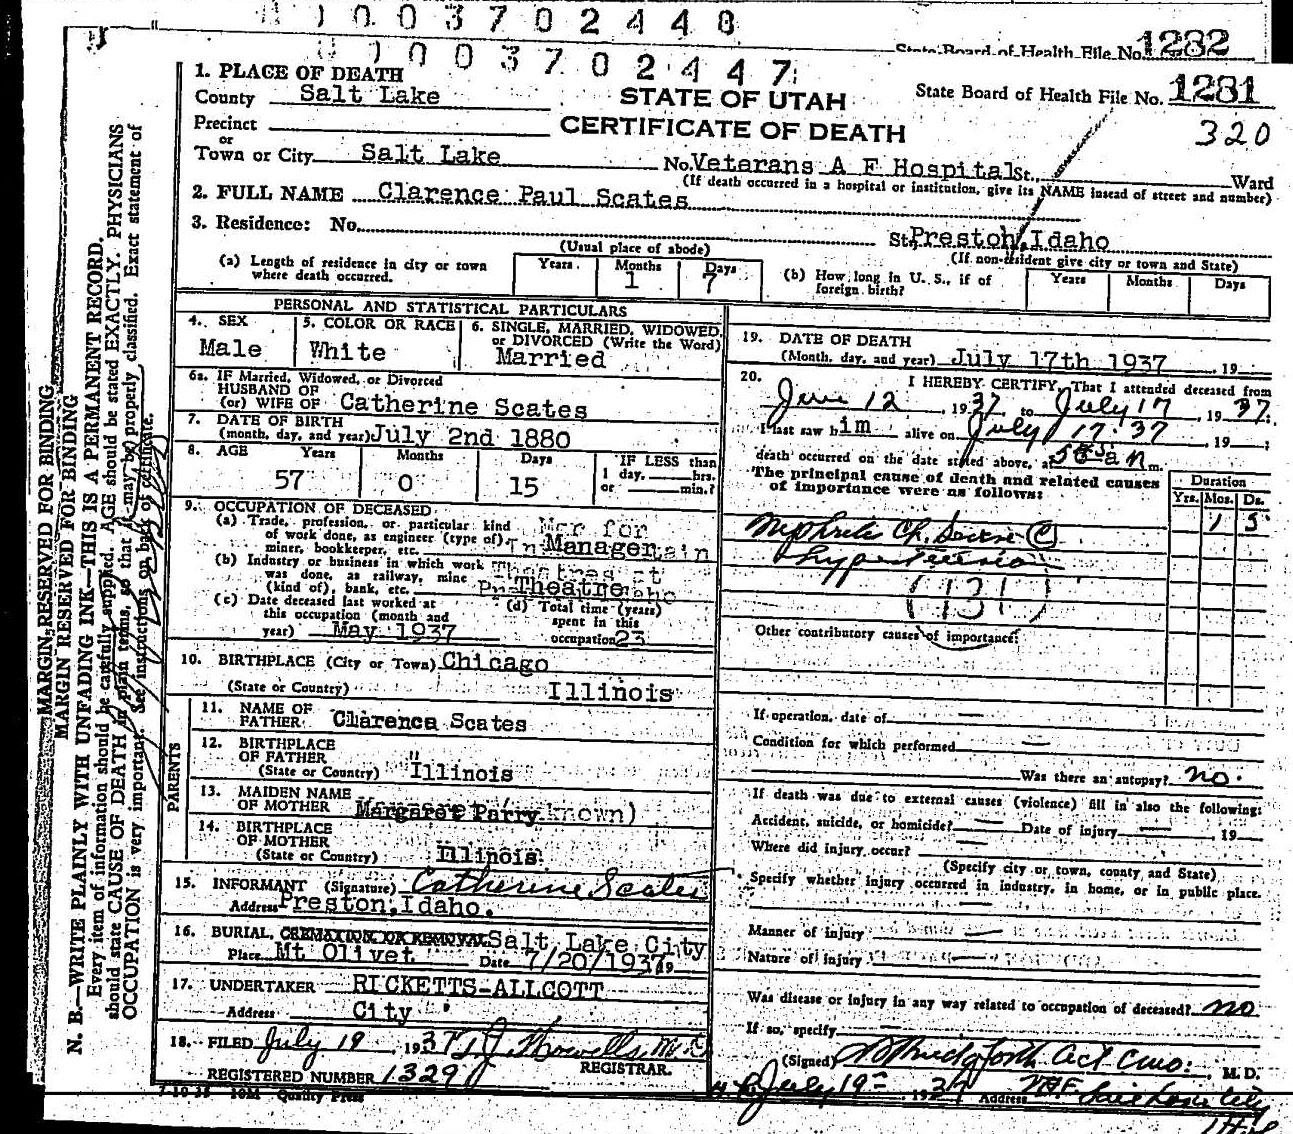 0003702448
State Board of Health File No. 1282
0003702447
1. PLACE OF DEATH
County Salt Lake
STATE OF UTAH
State Board of Health File No. 1281
Precinct
CERTIFICATE OF DEATH
320
or
Town or City Salt Lake No. Veterans A F Hospital St. Ward
(If death occurred in a hospital or institution, give its NAME instead of street and number)
2. FULL NAME Clarence Paul Scates
3. Residence: No. St. Preston, Idaho
(Usual place of abode) (If non-resident give city or town and State)
(a) Length of residence in city or town where death occurred. Years Months 1 Days 7
(b) How long in U. S., if of foreign birth? Years Months Days
PERSONAL AND STATISTICAL PARTICULARS
4. SEX Male
5. COLOR OR RACE White
6. SINGLE, MARRIED, WIDOWED, or DIVORCED (Write the Word) Married
6a. IF Married, Widowed, or Divorced
HUSBAND OF
(or) WIFE OF Catherine Scates
7. DATE OF BIRTH
(month, day, and year) July 2nd 1880
8. AGE Years Months Days IF LESS than
57 0 15 1 day, hrs.
or min.?
9. OCCUPATION OF DECEASED
(a) Trade, profession, or particular kind
of work done, as engineer (type of),
miner, bookkeeper, etc. Manager
(b) Industry or business in which work
was done, as railway, mine
(kind of), bank, etc. Theatre
(c) Date deceased last worked at
this occupation (month and
year) May 1937
(d) Total time (years)
spent in this
occupation 23
10. BIRTHPLACE (City or Town) Chicago
(State or Country) Illinois
PARENTS
11. NAME OF
FATHER Clarence Scates
12. BIRTHPLACE
OF FATHER
(State or Country) "Illinois
13. MAIDEN NAME
OF MOTHER Margaret Parry known)
14. BIRTHPLACE
OF MOTHER
(State or Country) Illinois
15. INFORMANT (Signature) Catherine Scates
Address Preston, Idaho.
16. BURIAL, CREMATION OR REMOVAL Salt Lake City
Place Mt Olivet Date 7/20/1937 19
17. UNDERTAKER RICKETTS-ALLCOTT
Address City
18. FILED July 19 1937
REGISTRAR.
REGISTERED NUMBER 1329
7-10-35 10M Quality Press
19. DATE OF DEATH
(Month, day, and year) July 17th 1937, 19
20. I HEREBY CERTIFY, That I attended deceased from
June 12, 1937 to July 17, 1937.
I last saw him alive on July 17-37, 19 ;
death occurred on the date stated above, at m.
The principal cause of death and related causes
of importance were as follows:
Duration
Yrs. Mos. Ds.
1 5
Hypertension
(131)
Other contributory causes of importance:
If operation, date of
Condition for which performed
Was there an autopsy? no.
If death was due to external causes (violence) fill in also the following:
Accident, suicide, or homicide? Date of injury , 19
Where did injury occur?
(Specify city or town, county and State)
Specify whether injury occurred in industry, in home, or in public place.
Manner of injury
Nature of injury
Was disease or injury in any way related to occupation of deceased? no
If so, specify
(Signed) M. D.
July 19 1937 Address
MARGIN RESERVED FOR BINDING
MARGIN RESERVED FOR BINDING
N. B.—WRITE PLAINLY WITH UNFADING INK—THIS IS A PERMANENT RECORD.
Every item of information should be carefully supplied. AGE should be stated EXACTLY. PHYSICIANS
should state CAUSE OF DEATH in plain terms, so that it may be properly classified. Exact statement of
OCCUPATION is very important. See instructions on back of certificate.